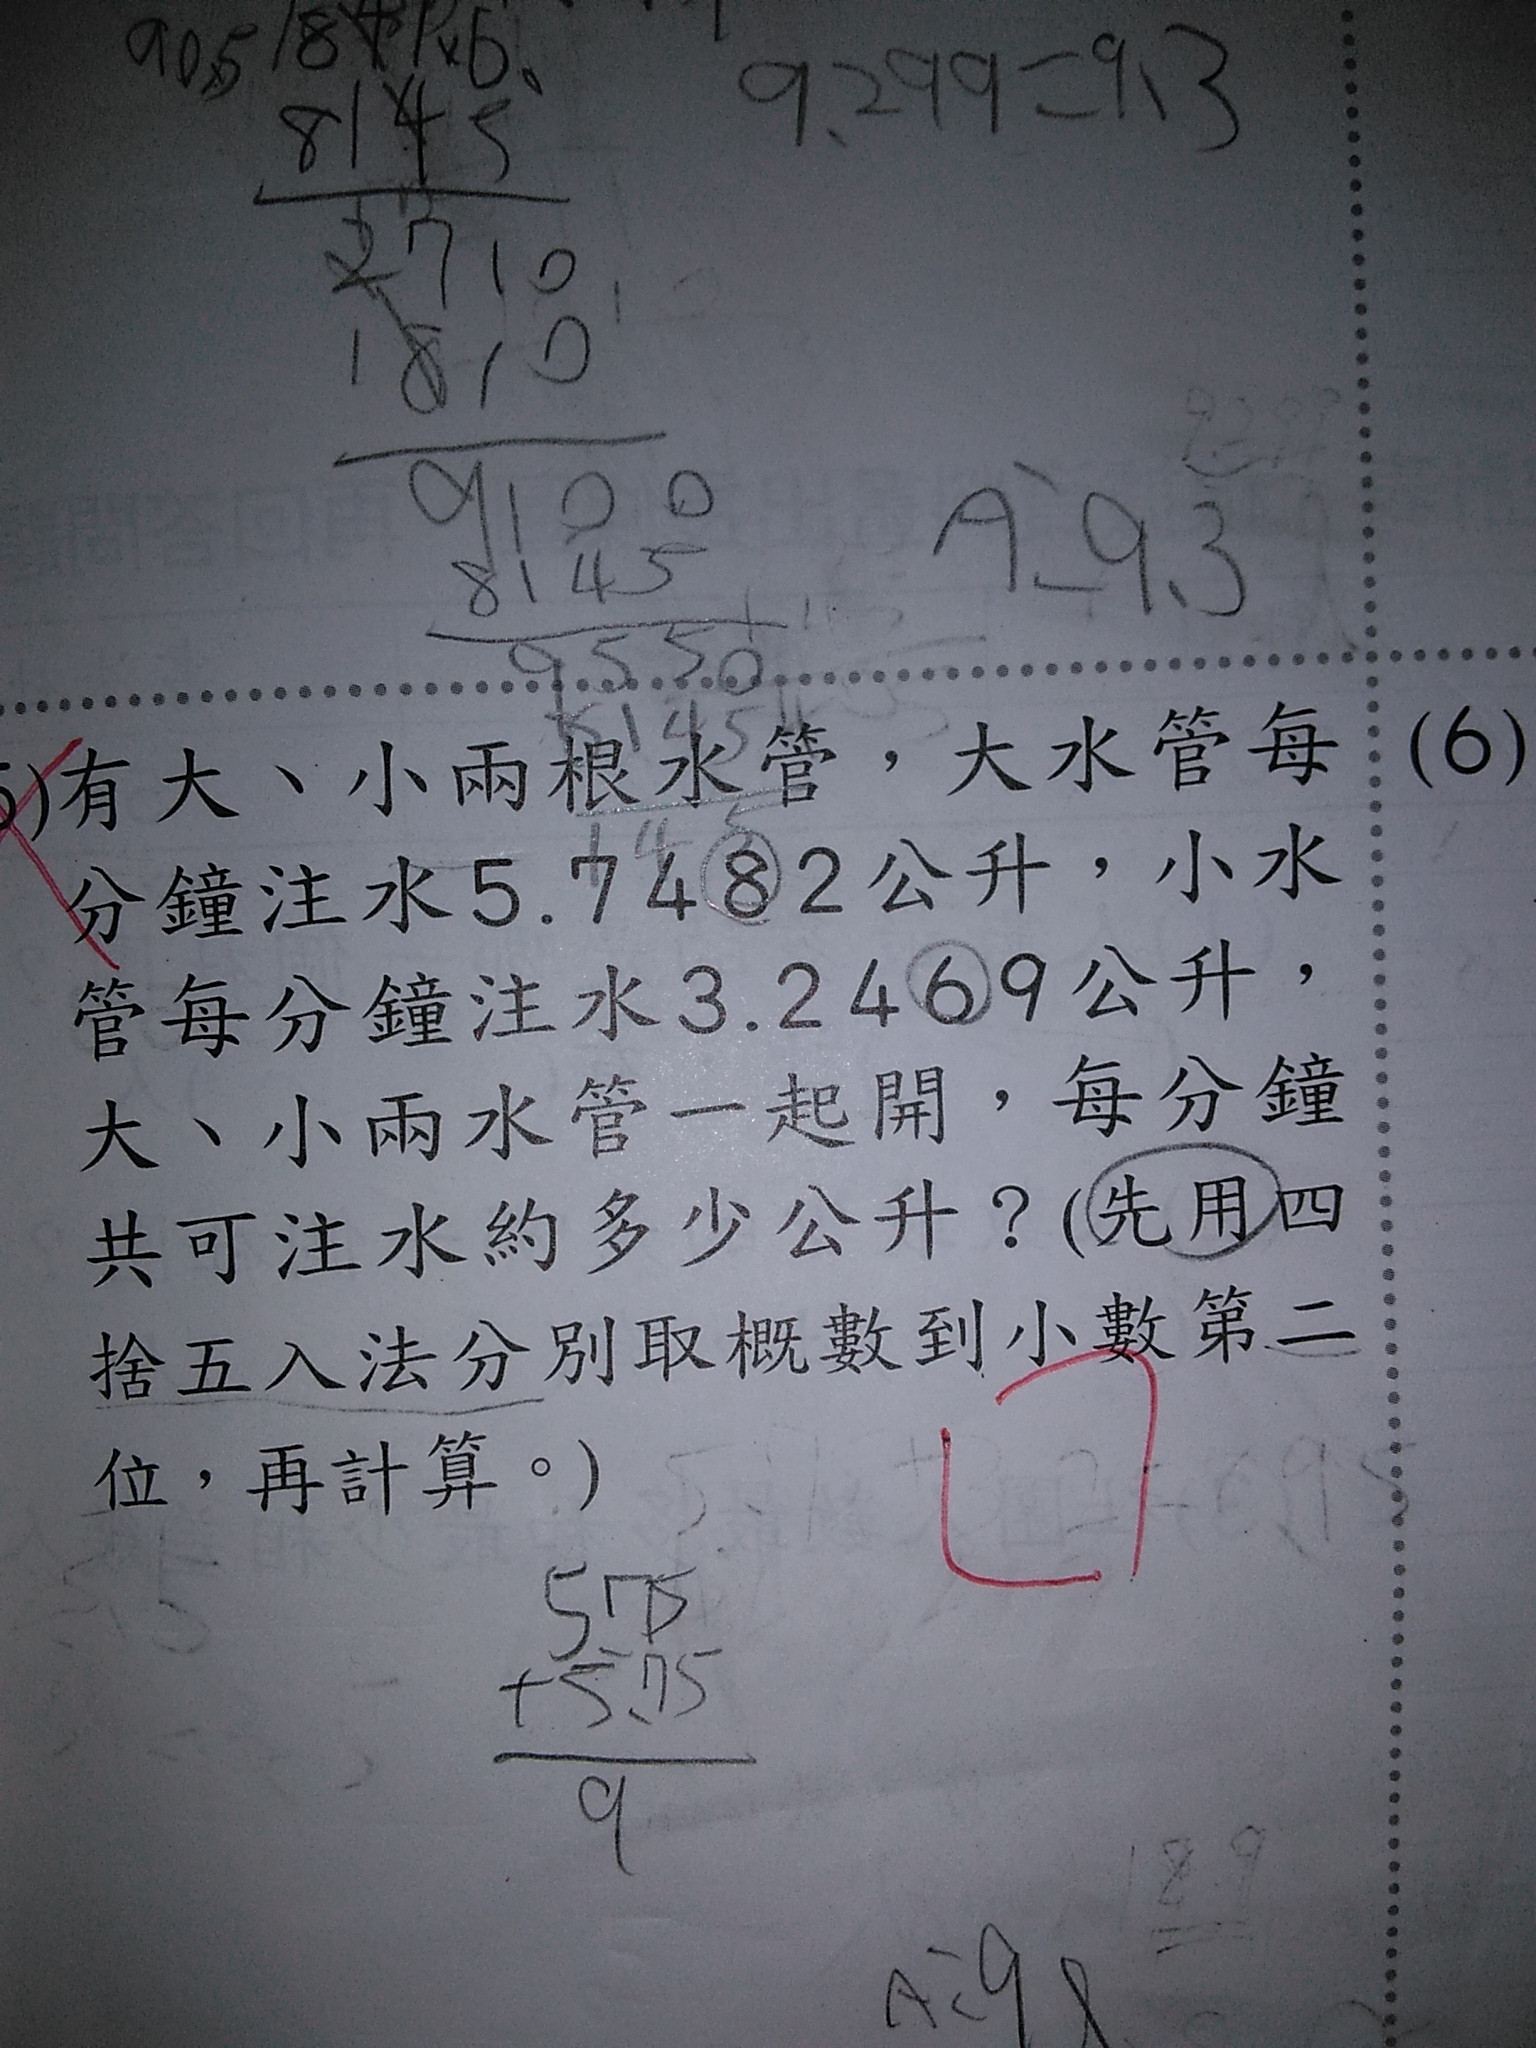 9.299=9.3
8145
2710
1810
9100
8145
9550
A:9.3
有大、小兩根水管，大水管每
分鐘注水5.7482公升，小水
管每分鐘注水3.2469公升，
大、小兩水管一起開，每分鐘
共可注水約多少公升？(先用四
捨五入法分別取概數到小數第二
位，再計算。)
(6)
5.75
+5.75
9
189
A:9